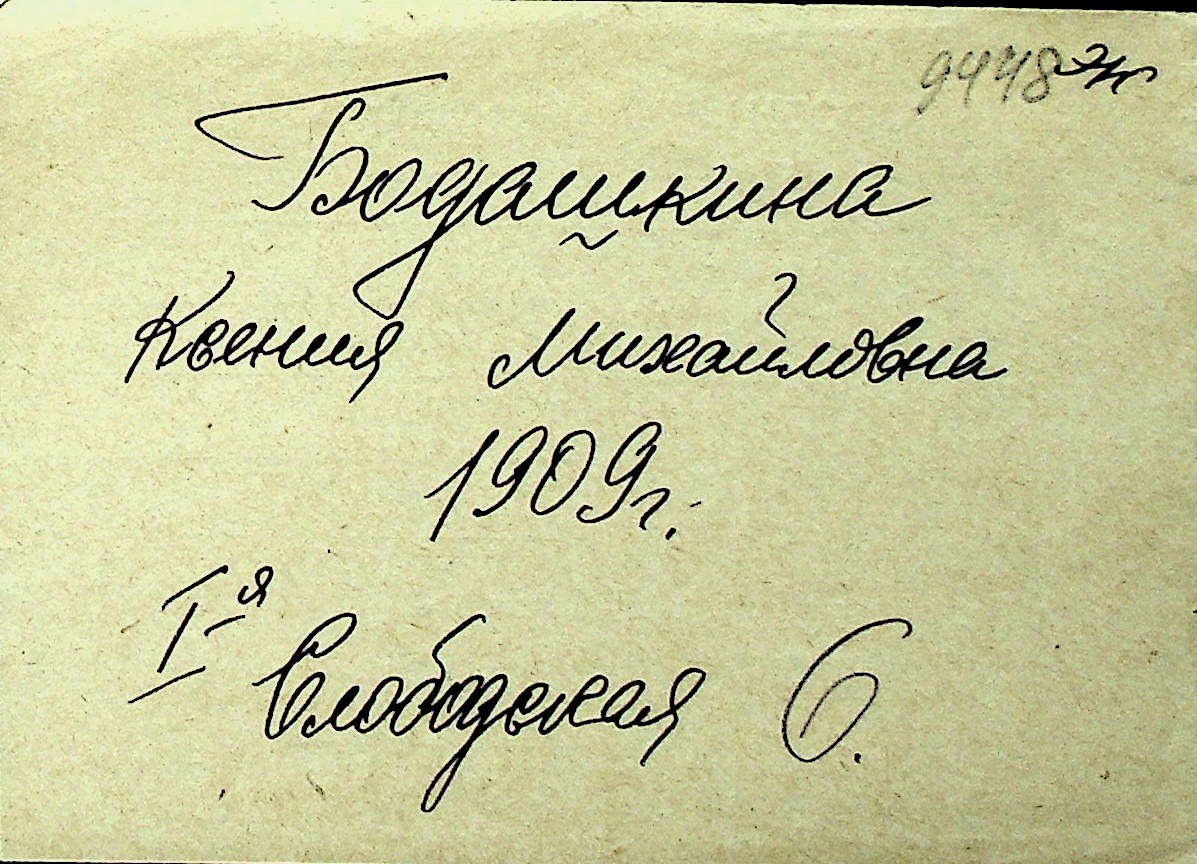 9448
Бодашкина
Ксения Михайловна
1909г.
I-я Слободская 6.